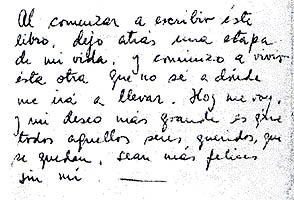 Al comenzar a escribir éste
libro, dejo atrás una etapa
de mi vida, y comienzo a vivir
ésta otra que no sé a dónde
me irá a llevar. Hoy me voy,
y mi deseo más grande es que
todos aquellos seres queridos, que
se quedan, sean más felices
sin mí.